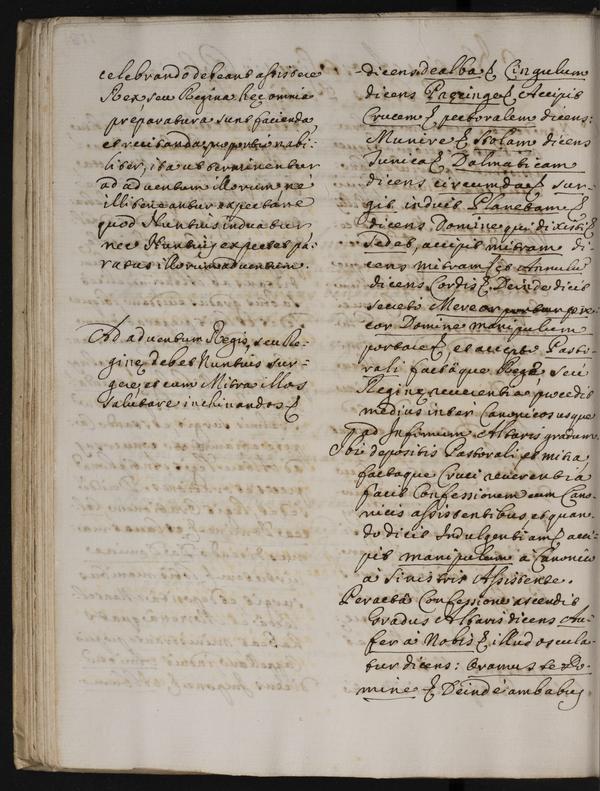 celebrando debeant assistere
Rex seu Regina hec omnia
preparatura sunt facienda
et recitanda proportionabi-
liter, ita ut terminentur
ad adventum illorum ne
illi teneantur expectare
quod Nuntius induatur
nec Nuntius expectet pa-
ratus illorum adventum.
Ad adventum Regis, seu Re-
ginę debet Nuntius sur-
gere, et cum Mitra illos
salutare inclinando se &
dicens dealba & Cingulum
dicens Precinge & Accipit
Crucem & pectoralem dicens:
Munire & Stolam dicens
Tunica & Dalmaticam
dicens circumda & sur-
git induit Planetam &
dicens Domine qui dixisti &
sedet, accipit mitram di-
cens mitram & et Annulu
dicens Cordis & Deinde dicit
secreto Merear pre-
cor Domine manipulum
portare &, et accepto Pasto-
rali factaque Regi seu
Reginę reverentia procedit
medius inter Canonicos usque
ad Infimum Altaris gradum
Ibi depositis Pastorali, et mitra
factaque Cruci reverentia
facit Confessionem cum Cano-
nicis assistentibus, et quan-
do dicit Indulgentiam & acci-
pit manipulum a Canonico
a sinistris Assistente.
Peracta Confessione ascendit
gradus Altaris dicens Au-
fer a Nobis & illud oscula-
tur dicens: Oramus te Do-
mine & Deinde ambabus